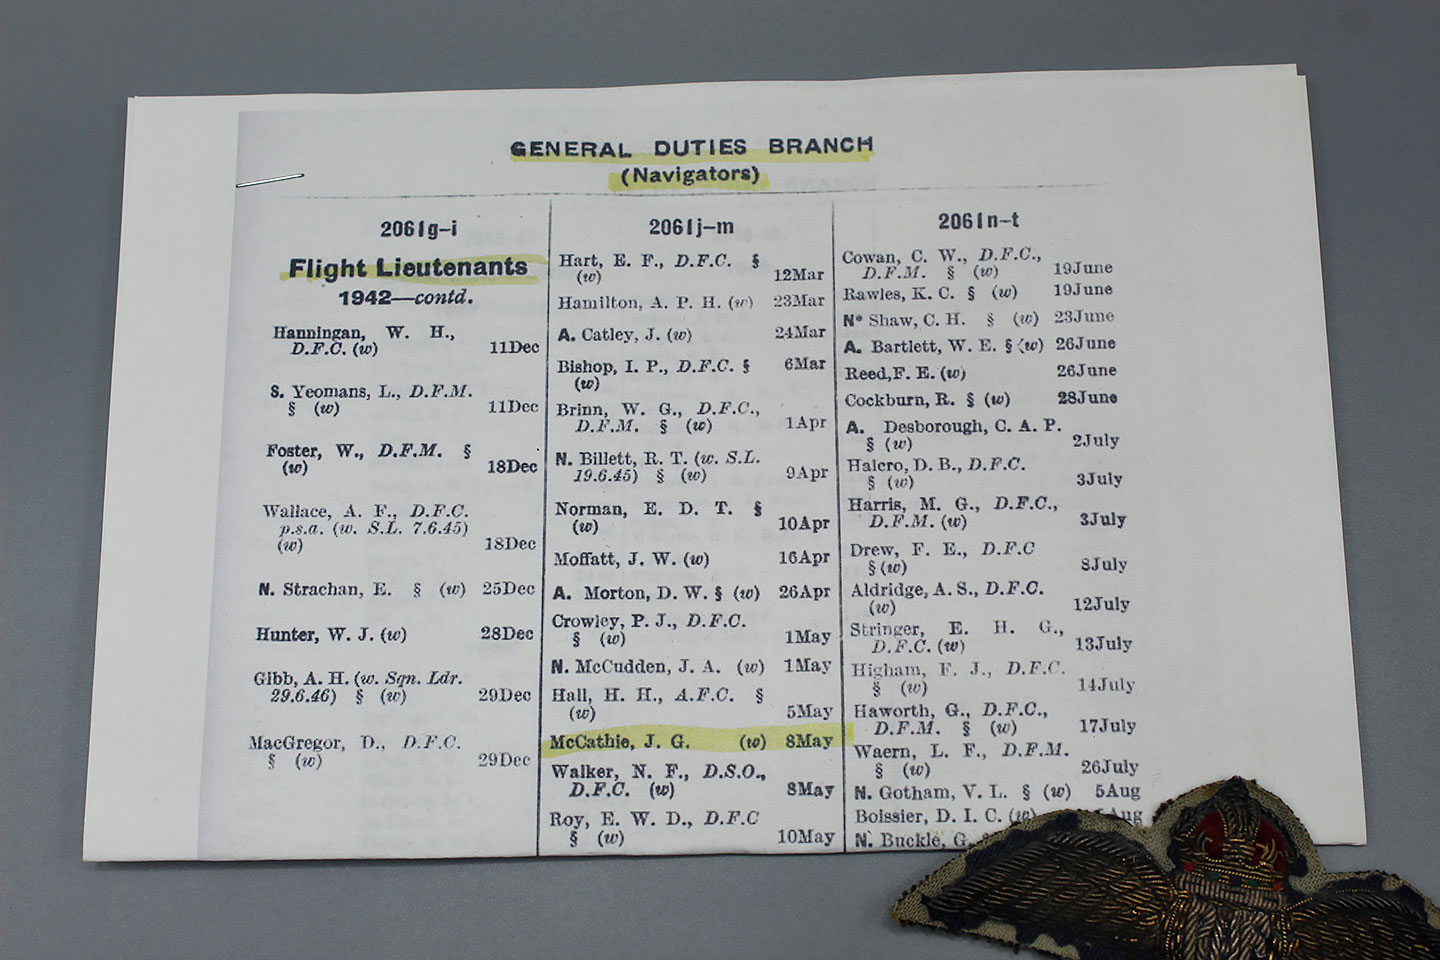 GENERAL DUTIES BRANCH
(Navigators)
2061g-i
Flight Lieutenants
1942—contd.
Hanningan, W. H.,
D.F.C. (w) 11Dec
S. Yeomans, L., D.F.M.
§ (w) 11Dec
Foster, W., D.F.M. §
(w) 18Dec
Wallace, A. F., D.F.C.
p.s.a. (w. S.L. 7.6.45)
(w) 18Dec
N. Strachan, E. § (w) 25Dec
Hunter, W. J. (w) 28Dec
Gibb, A. H. (w. Sqn. Ldr.
29.6.46) § (w) 29Dec
MacGregor, D., D.F.C.
§ (w) 29Dec
2061j-m
Hart, E. F., D.F.C. §
(w) 12Mar
Hamilton, A. P. H. (w) 23Mar
A. Catley, J. (w) 24Mar
Bishop, I. P., D.F.C. § 6Mar
(w)
Brinn, W. G., D.F.C.,
D.F.M. § (w) 1Apr
N. Billett, R. T. (w. S.L.
19.6.45) § (w) 9Apr
Norman, E. D. T. §
(w) 10Apr
Moffatt, J. W. (w) 16Apr
A. Morton, D. W. § (w) 26Apr
Crowley, P. J., D.F.C.
§ (w) 1May
N. McCudden, J. A. (w) 1May
Hall, H. H., A.F.C. §
(w) 5May
McCathie, J. G. (w) 8May
Walker, N. F., D.S.O.,
D.F.C. (w) 8May
Roy, E. W. D., D.F.C
§ (w) 10May
2061n-t
Cowan, C. W., D.F.C.,
D.F.M. § (w) 19June
Rawles, K. C. § (w) 19June
N* Shaw, C. H. § (w) 23June
A. Bartlett, W. E. § (w) 26June
Reed, F. E. (w) 26June
Cockburn, R. § (w) 28June
A. Desborough, C. A. P.
§ (w) 2July
Halcro, D. B., D.F.C.
§ (w) 3July
Harris, M. G., D.F.C.,
D.F.M. (w) 3July
Drew, F. E., D.F.C
§ (w) 8July
Aldridge, A. S., D.F.C.
(w) 12July
Stringer, E. H. G.,
D.F.C. (w) 13July
Higham, F. J., D.F.C.
§ (w) 14July
Haworth, G., D.F.C.,
D.F.M. § (w) 17July
Waern, L. F., D.F.M.
§ (w) 26July
N. Gotham, V. L. § (w) 5Aug
Boissier, D. I. C. (w)
N. Buckle, G.